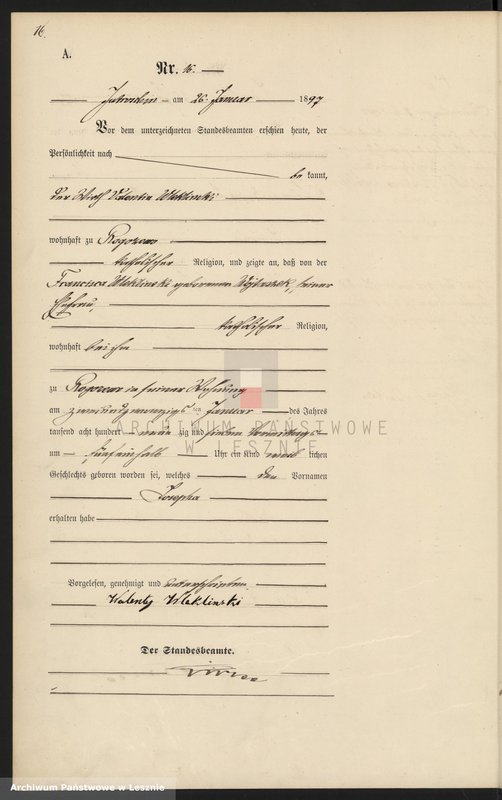 16.
A.
Nr. 16.
Jutroschin am 26. Januar 1897
Vor dem unterzeichneten Standesbeamten erschien heute, der
Persönlichkeit nach
be kannt,
der Wirth Valentin Wleklinski
wohnhaft zu Rogozewo
katholischer Religion, und zeigte an, daß von der
Francisca Wleklinski geborenen seiner
Ehefrau,
katholischer Religion,
wohnhaft bei ihm
zu Rogozewo in seiner Wohnung
am zweiundzwanzigs ten Januar des Jahres
tausend acht hundert neun zig und sieben Vormittags
um fünfeinhalb Uhr ein Kind weib lichen
Geschlechts geboren worden sei, welches den Vornamen
Josepha
erhalten habe
Vorgelesen, genehmigt und unterschrieben
Walenty Wleklinski
Der Standesbeamte.
ARCHIWUM PAŃSTWOWE
W LESZNIE
Archiwum Państwowe w Lesznie